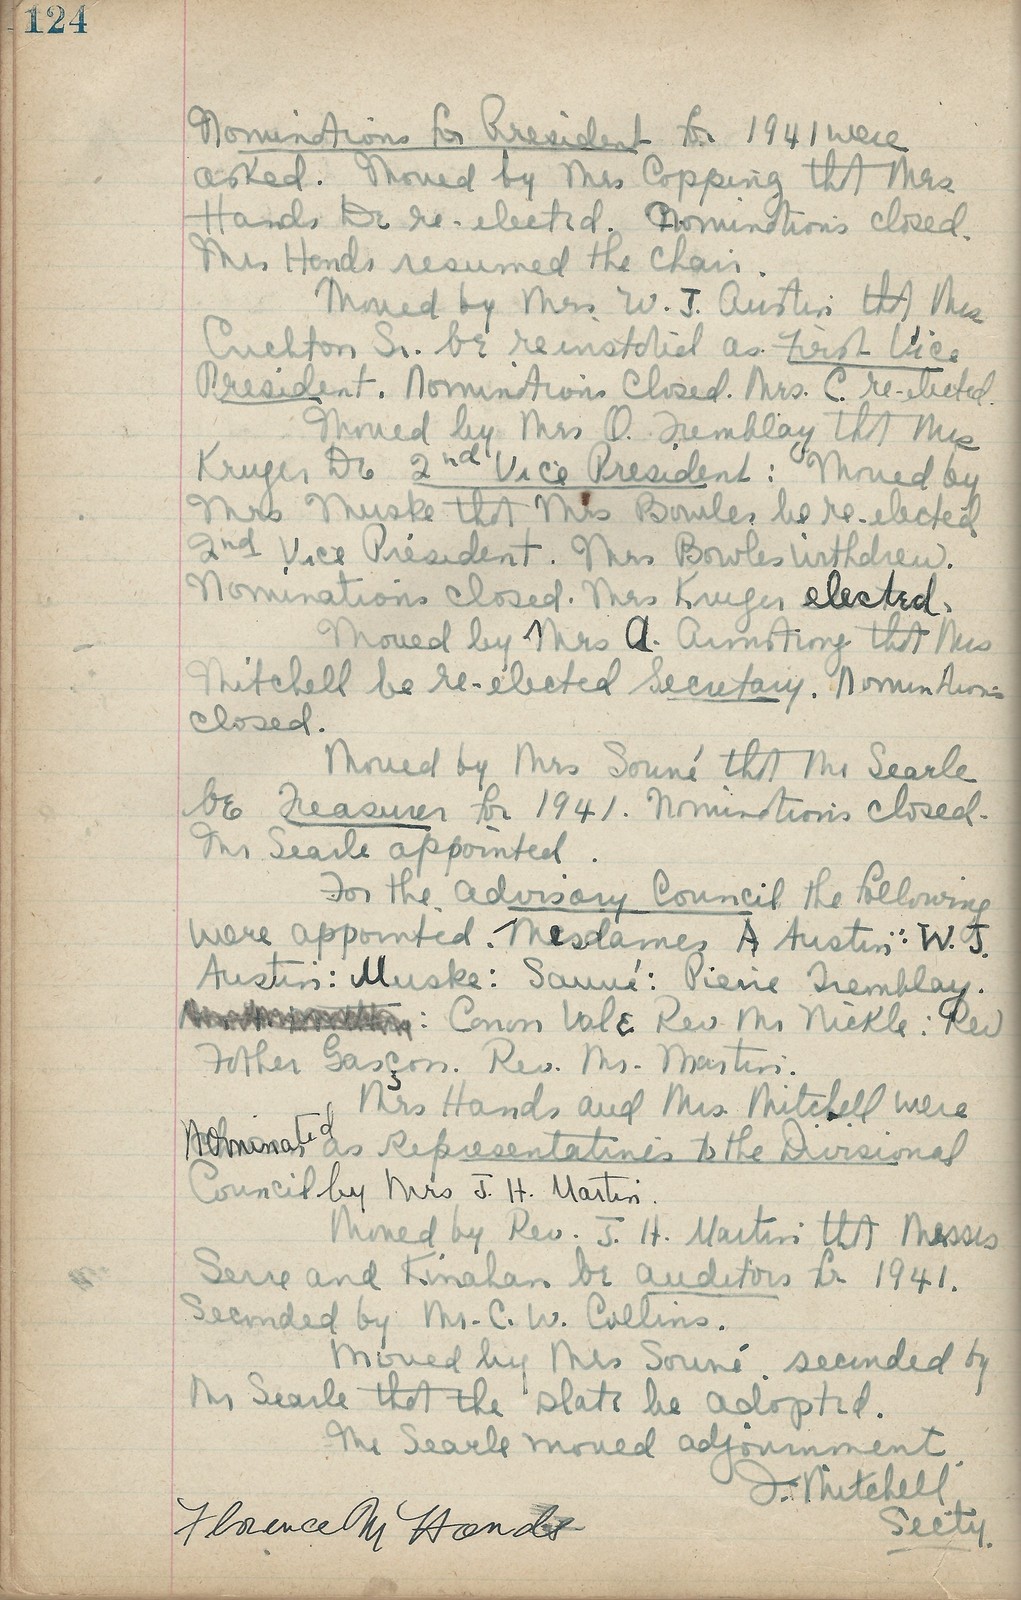 124
Nominations for President for 1941 were
asked. Moved by Mrs Copping that Mrs
Hands be re-elected. Nominations closed.
Mrs Hands resumed the chair.
Moved by Mrs. W. J. Austin that Mrs
Sr. be reinstated as First Vice
President. Nominations Closed. Mrs. C. re-elected.
Moved by Mrs O. Tremblay that Mrs
Kruger be 2nd Vice President: Moved by
Mrs Muske that Mrs Bowles be re-elected
2nd Vice President. Mrs Bowles withdrew.
Nominations closed. Mrs Kruger elected.
Moved by Mrs A. Armstrong that Mrs
Mitchell be re-elected Secretary. Nominations
closed.
Moved by Mrs Sauné that Mr Searle
be Treasurer for 1941. Nominations closed.
Mr Searle appointed.
For the Advisory Council the following
were appointed. Mesdames A Austin: W. J.
Austin: Muske: Sauné: Pierre Tremblay.
: Canon Vale Rev Mr Nickle: Rev
Father Gascon. Rev. Mr. Martin.
Mrs Hands and Mrs. Mitchell were
Nominated as Representatives to the Divisional
Council by Mrs J. H. Martin.
Moved by Rev. J. H. Martin that Messrs
Serre and Kinahan be auditors for 1941.
Seconded by Mr. C. W. Collins.
Moved by Mrs Sauné seconded by
Mr Searle that the slate be adopted.
Mr Searle moved adjournment.
J. Mitchell
Secty.
Florence M Hands